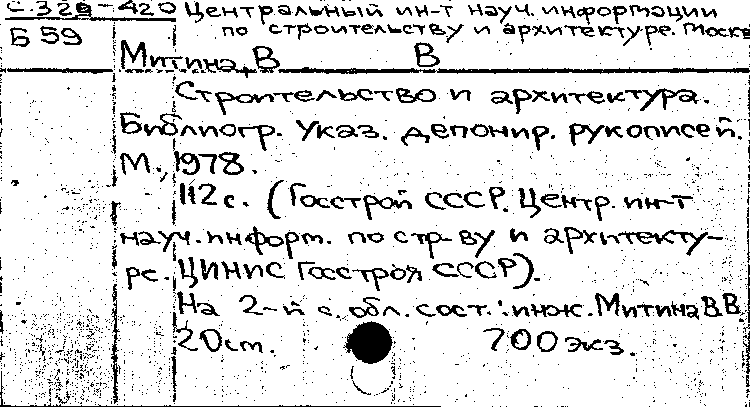 С.328-420 Центральный ин-т науч. информации
Б 59 по строительству и архитектуре. Москв
Митина, В В
Строительство и архитектура.
Библиогр. Указ. депонир. рукописей.
М., 1978.
112 с. (Госстрой СССР. Центр. ин-т
науч. информ. по стр-ву и архитекту-
ре. ЦИНИС Госстроя СССР).
На 2-й с. обл. сост.: инж. Митина В.В.
20 см. 700 экз.